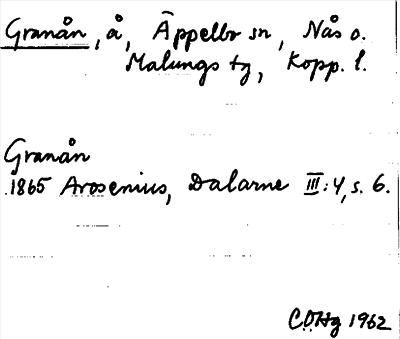 Granån, å, Äppelbo sn, Nås o.
Malungs tg, Kopp. l.
Granån
1865 Arosenius, Dalarne III:4, s. 6.
COHg 1962